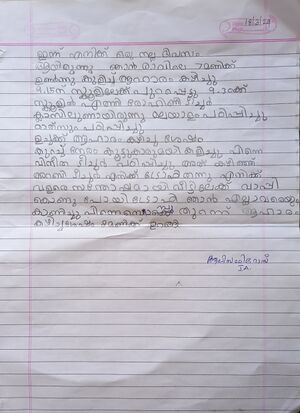 18/2/24
ഇന്ന് എനിക്ക് ഒരു നല്ല ദിവസം
ആയിരുന്നു ഞാൻ രാവിലെ 7മണിക്ക്
ഉണർന്നു കുളിച്ച് ആഹാരം കഴിച്ചു
9.15ന് സ്കൂളിലേക്ക് പുറപ്പെട്ടു 9.30ക്ക്
സ്കൂളിൽ എത്തി രോഹിണി ടീച്ചർ
ക്ലാസിലുണ്ടായിരുന്നു മലയാളം പഠിപ്പിച്ചു
മാത്‌സും പഠിപ്പിച്ചു
ഉച്ചക്ക് ആഹാരം കഴിച്ച ശേഷം
കുറച്ച് നേരം കൂട്ടുകാരുമായി കളിച്ചു പിന്നെ
വിനീത ടീച്ചർ പഠിപ്പിച്ചു അത് കഴിഞ്ഞ്
ടീച്ചർ എനിക്ക് ട്രോഫി തന്നു എനിക്ക്
വളരെ സന്തോഷമായി വീട്ടിലേക്ക് വാപ്പി
കൊണ്ടു പോയി ട്രോഫി ഞാൻ എല്ലാവരെയും
കാണിച്ചു പിന്നെ ആഹാരം
കഴിച്ചശേഷം മണിക്ക് ഉറങ്ങി
1A